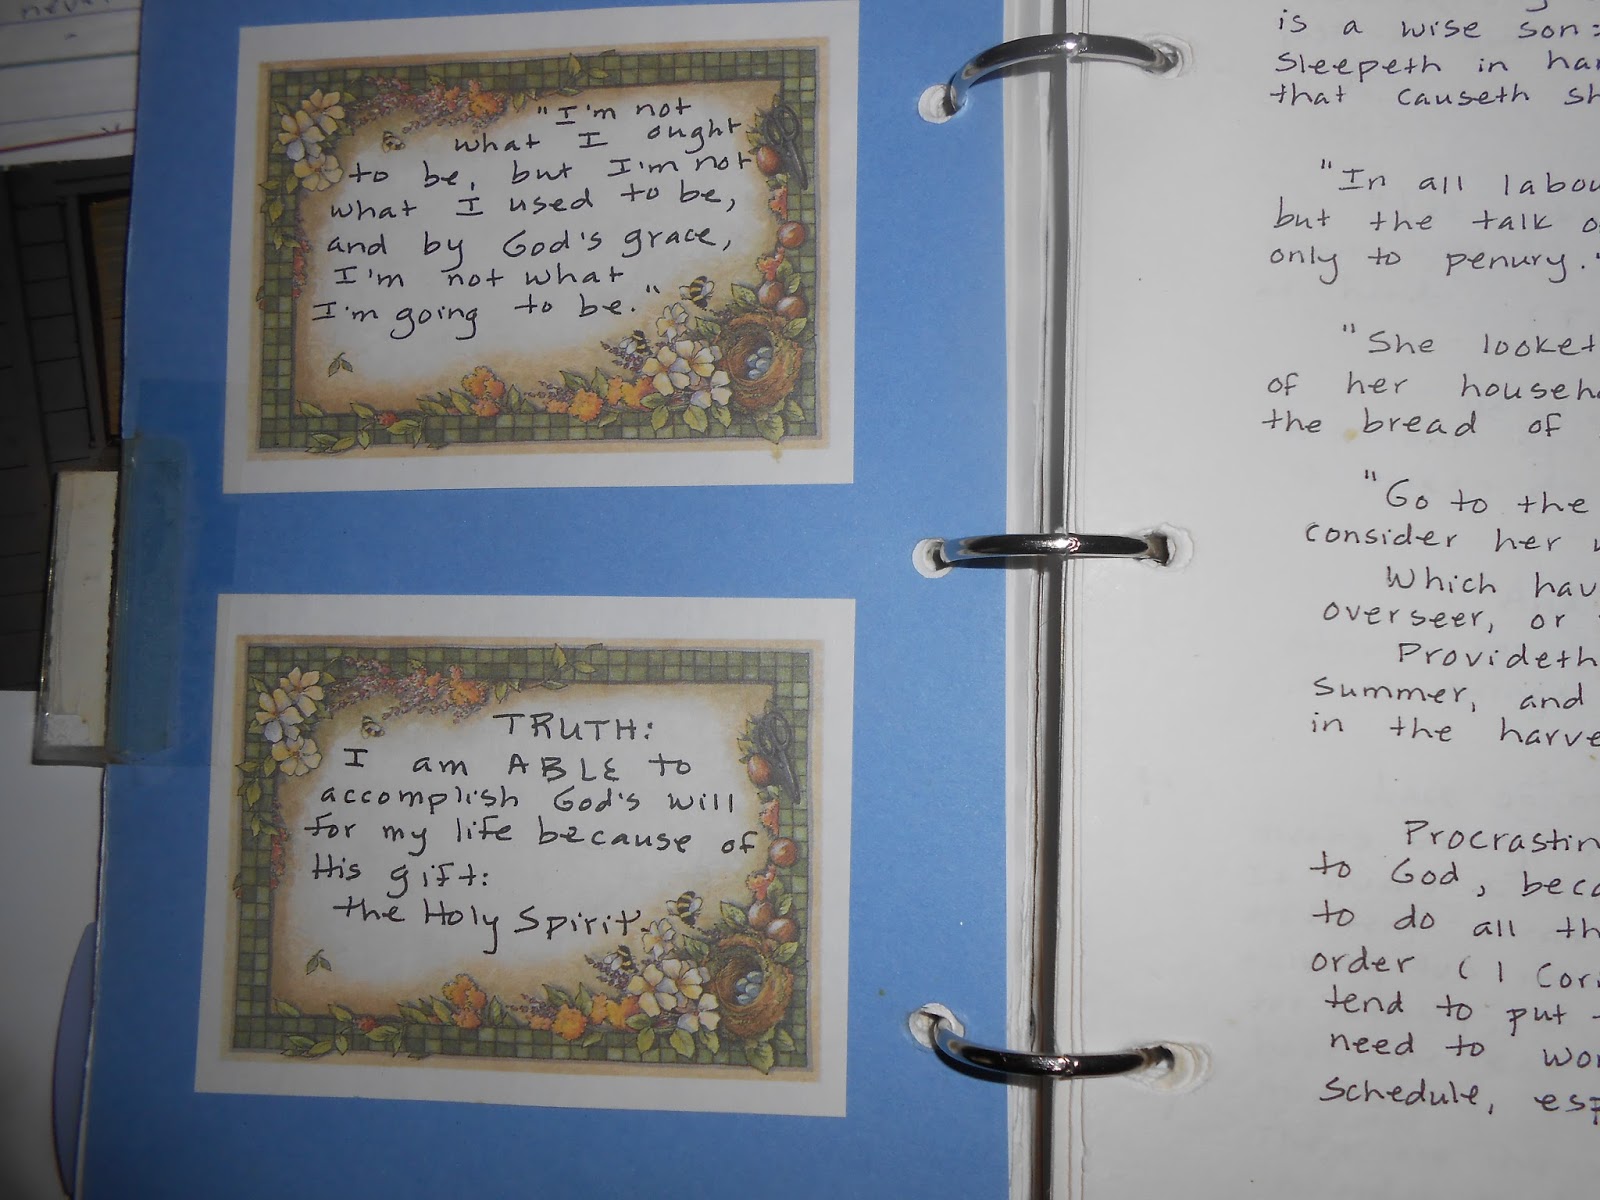 never
"I'm not
what I ought
to be, but I'm not
what I used to be,
and by God's grace,
I'm not what
I'm going to be."
TRUTH:
I am ABLE to
accomplish God's will
for my life because of
His gift:
the Holy Spirit.
is a wise son:
sleepeth in har
that causeth sh
"In all labou
but the talk o
only to penury."
"She looket
of her househ
the bread of
"Go to the
consider her w
Which hav
overseer, or
Provideth
summer, and
in the harve
Procrastin
to God, beca
to do all th
order (1 Cori
tend to put
need to wor
schedule, esp